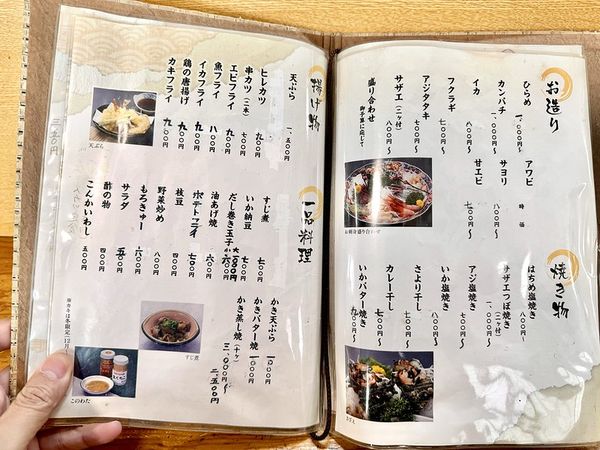 お造り
ひらめ 八〇〇円〜
カンパチ 一、〇〇〇円〜
イカ 八〇〇円〜
フクラギ 七〇〇円〜
アジタタキ 七〇〇円〜
サザエ(二ヶ付) 八〇〇円〜
盛り合わせ
御予算に応じて
アワビ 時価
サヨリ 八〇〇円〜
甘エビ 七〇〇円〜
お刺身盛り合わせ
焼き物
はちめ塩焼き 八〇〇円〜
サザエつぼ焼き(二ヶ付) 一、〇〇〇円〜
アジ塩焼き 七〇〇円〜
いか塩焼き 八〇〇円〜
さより干し 七〇〇円〜
カレー干し 七〇〇円〜
いかバター焼き 九〇〇円〜
揚げ物
天ぷら 一、五〇〇円
ヒレカツ 九〇〇円
串カツ(二本) 七〇〇円
エビフライ 九〇〇円
魚フライ 八〇〇円
イカフライ 九〇〇円
鶏の唐揚げ 九〇〇円
カキフライ
天ぷら
一品料理
すじ煮 七〇〇円
いか納豆 七〇〇円
だし巻き玉子
油あげ焼 六〇〇円
ポテトフライ 七〇〇円
枝豆 六〇〇円
野菜炒め 八〇〇円
もろきゅー 六〇〇円
サラダ
酢の物 四〇〇円
こんかいわし 五〇〇円
かき天ぷら 一〇〇〇円
かきバター焼 一〇〇〇円
かき蒸し焼(十ヶ) 三、〇〇〇円
二、五〇〇円
すじ煮
このわた